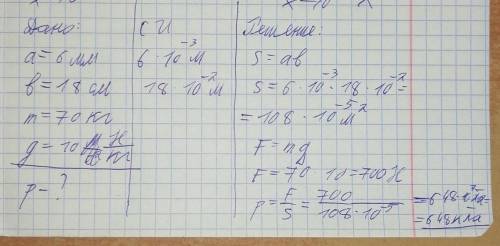 Дано:
a = 6 мм
b = 18 см
m = 70 кг
g = 10 Н/кг
p - ?
СИ
6 · 10⁻³ м
18 · 10⁻² м
Решение:
S = ab
S = 6 · 10⁻³ · 18 · 10⁻² =
= 108 · 10⁻⁵ м²
F = mg
F = 70 · 10 = 700 Н
p = F/S = 700/108 · 10⁻⁵ = 648 · 10³ Па =
= 648 кПа